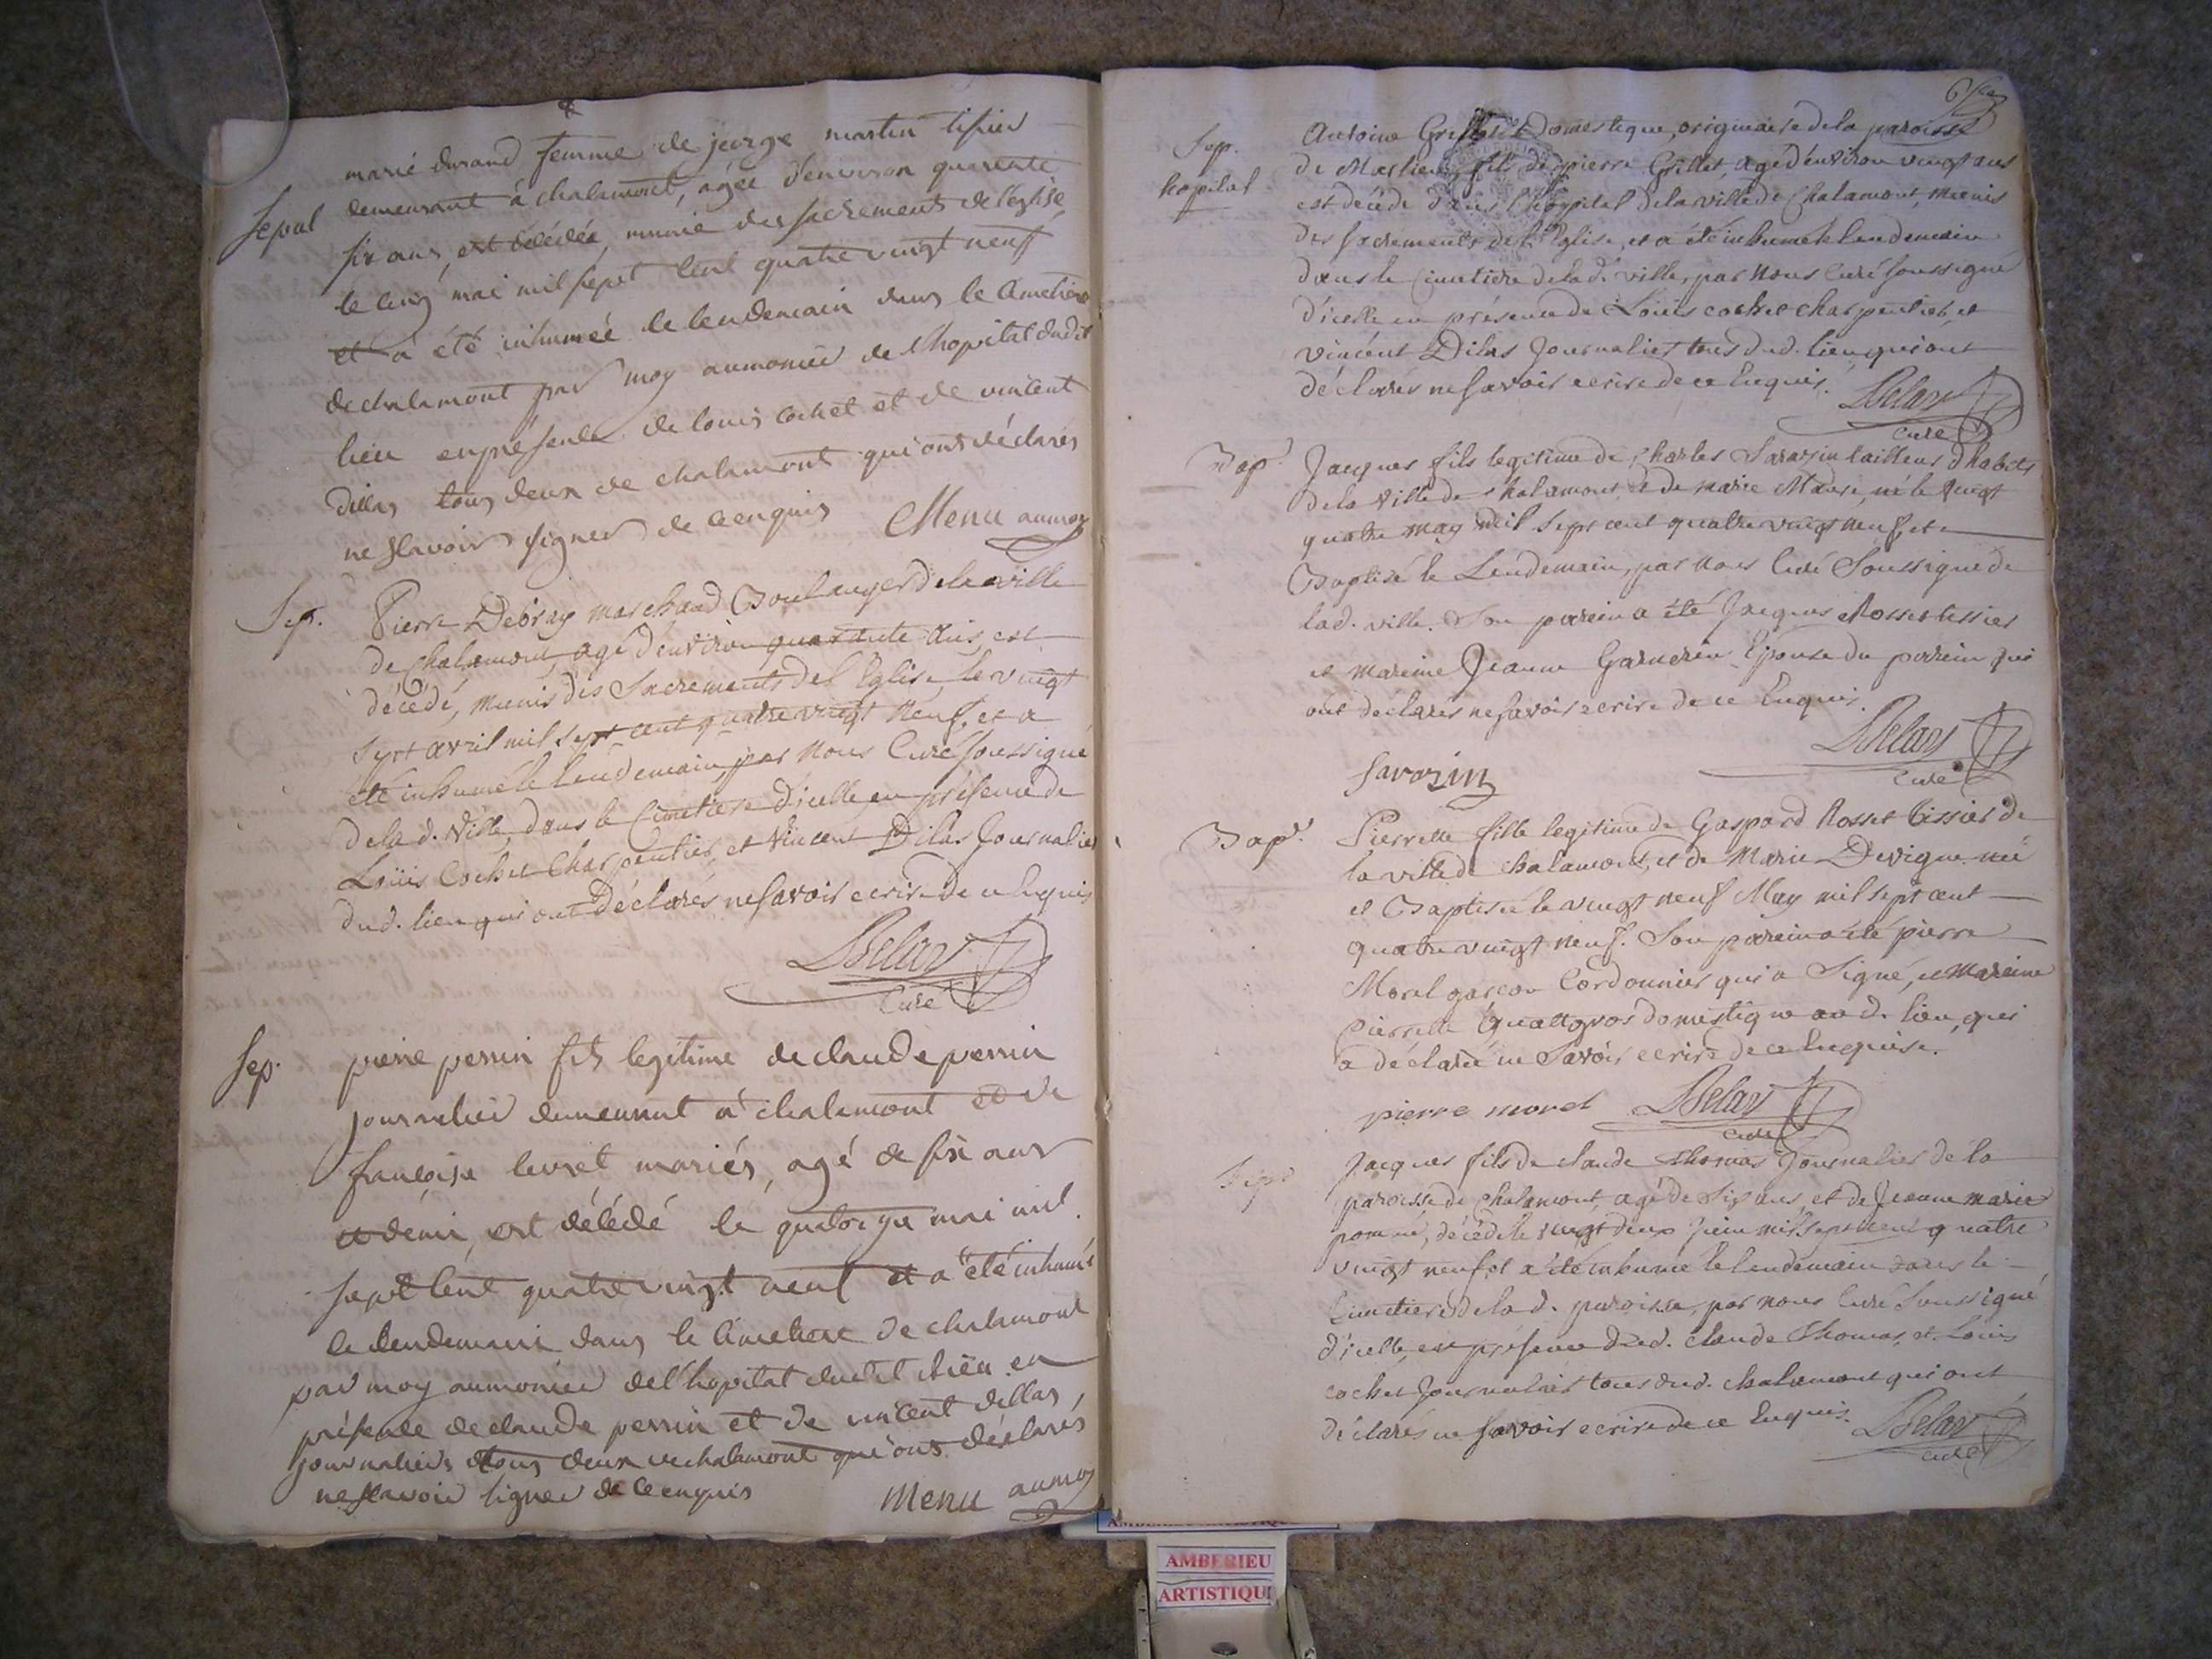 marie durand femme de jorge martin tisier
Sepul
demeurant à chalamont, agée d'environ quarente
six ans, est décédée, munie des sacrements de l'eglise
le cinq mai mil sept cent quatre vingt neuf
et a été inhumée le lendemain dans le cimetiere
de chalamont par moy aumonier de l'hopital dudit
lieu en présence de louis cochet et de vincent
dillas tous deux de chalamont qui ont déclarés
ne sçavoir signer de ce enquis Menu aumo
Sep.
Pierre Debray marchand Boulanger de la ville
de Chalamont, agé d'environ quarante ans, est
décédé, munis des Sacrements del'Eglise, le vingt
sept avril mil sept cent quatre vingt neuf, et a
été inhumé le lendemain, par nous Curé soussigné
de la d. ville, dans le Cimetiere d'icelle en présence de
Loüis Cochet Charpentier, et Vincent Dilas Journalier
dud. lieu qui ont déclarés ne savoir ecrire de ce Enquis
Curé
Sep.
pierre perrin fils legitime de claude perrin
journalier demeurant à chalamont et de
françoise leuret mariés, agé de six ans
et demi, est décédé le quatorze mai mil
sept cent quatre vingt neuf et a été inhumé
le lendemain dans le cimetiere de chalamont
par moy aumonier de l'hopital dudit lieu en
présence de claude perrin et de vincent dillas,
journaliers tous deux de chalamont qui ont déclarés
ne sçavoir signer de ce enquis Menu aumo
Sep.
hopital
Antoine Domestique, originaire de la paroisse
de fils de pierre Grillet, agé d'environ vingt ans
est décédé dans l'hopital de la ville de Chalamont, munis
des sacrements de l'Eglise, et a été inhumé le lendemain
dans le Cimetiere de la d. ville, par Nous Curé soussigné
d'icelle en présence de Loüis cochet charpentier, et
vincent Dilas Journalier tous dud. lieu qui ont
déclarés ne savoir ecrire de ce Enquis.
Curé
Bap.
Jacques fils legitime de Charles Savarin tailleur d'habits
de la ville de Chalamont, et de marie né le vingt
quatre may mil sept cent quatre vingt neuf, et
Baptisé le Lendemain, par nous Curé Soussigné de
lad. ville. Son parein a été Jacques Rosset tessier
et mareine Jeanne Epouse du parein qui
ont déclarés ne savoir ecrire de ce Enquis.
Savarin
Curé
Bap.
Pierrette fille legitime de Gaspard Rosset tissier de
la ville de chalamont, et de Marie Devigne née
et Baptisée le vingt neuf May mil sept cent
quatre vingt neuf. Son parein a été pierre
Morel garçon Cordonnier qui a Signé, et Mareine
Pierrette domestique aud. lieu, qui
a déclaré ne Savoir ecrire de ce Enquise.
pierre morel
Curé
Jacques fils de claude thomas Journalier de la
paroisse de Chalamont, agé de six ans, et de Jeanne marie
décédé le vingt deux juin mil sept cent quatre
vingt neuf, et a été inhumé le lendemain dans le
Cimetiere de la d. paroisse, par nous Curé Soussigné
d'icelle, en présence dud. claude thomas, et Loüis
cochet Journalier tous dud. chalamont qui ont
déclarés ne savoir ecrire de ce Enquis.
Curé
AMBERIEU
ARTISTIQU